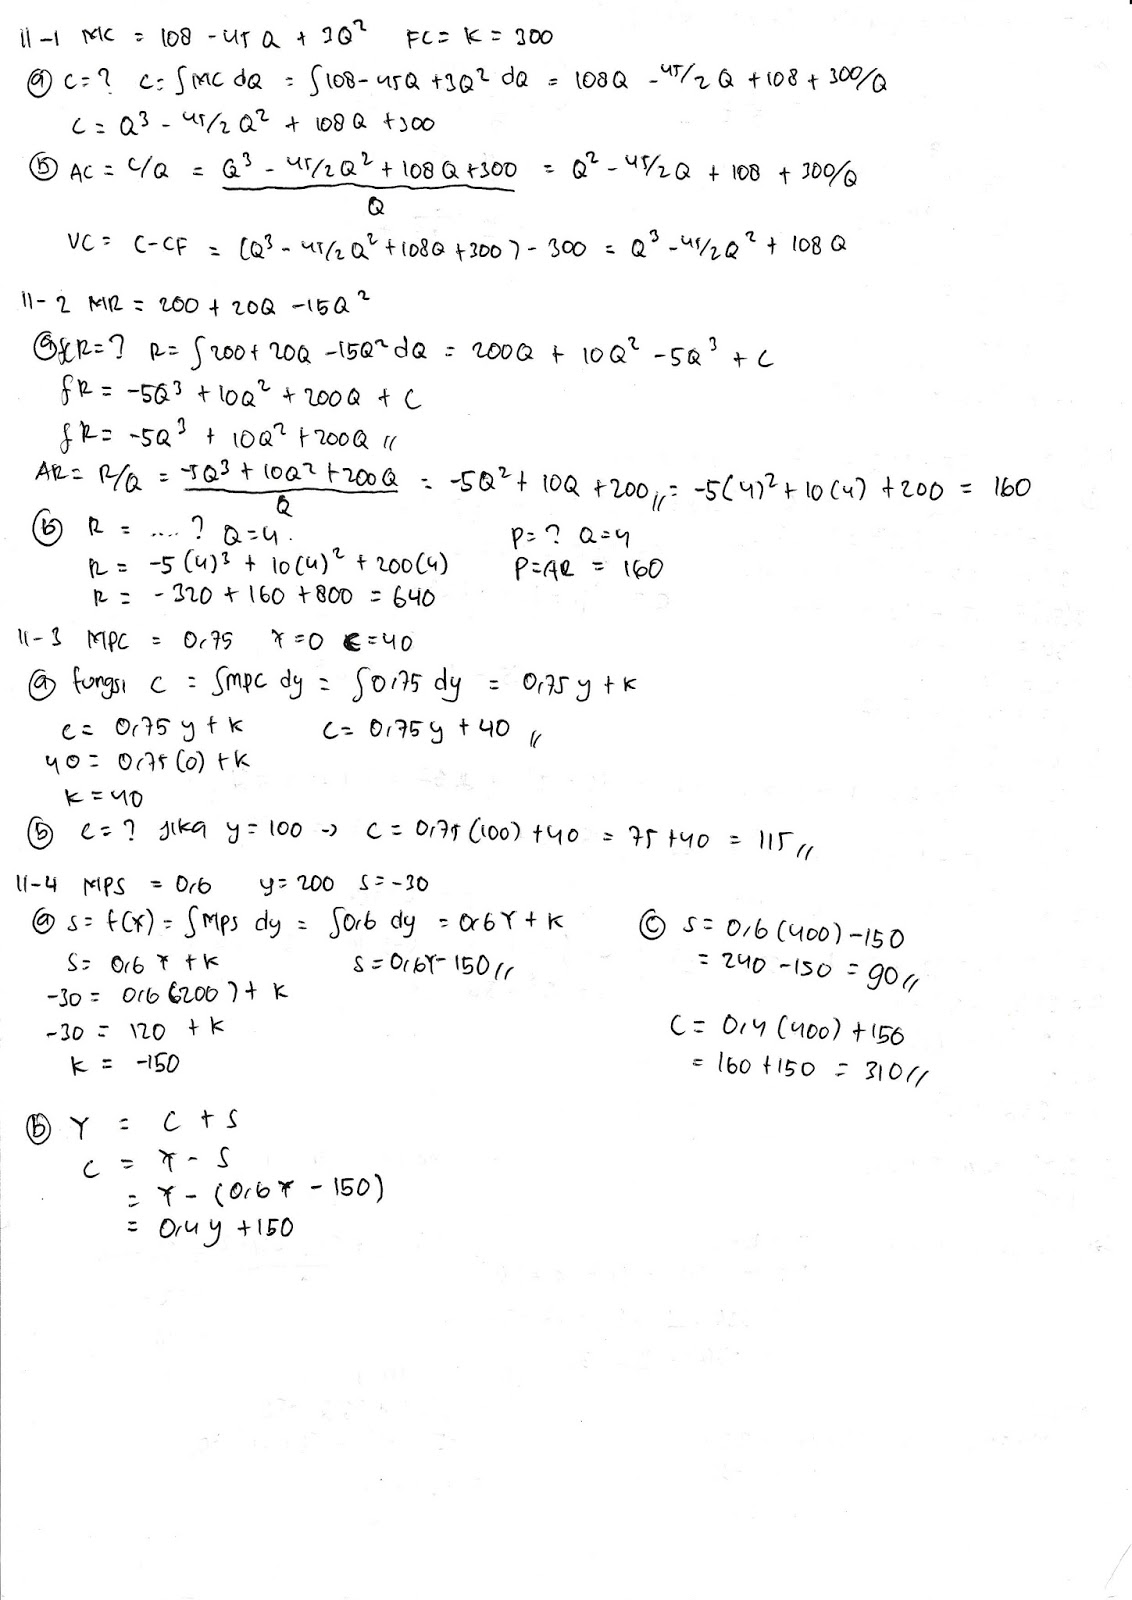 11-1 MC = 108 - 45Q + 3Q² FC = K = 300
(a) C = ? C = ∫MC dQ = ∫108 - 45Q + 3Q² dQ = 108Q - 45/2 Q + 108 + 300/Q
C = Q³ - 45/2Q² + 108Q + 300
(b) AC = C/Q = Q³ - 45/2Q² + 108Q + 300 / Q = Q² - 45/2Q + 108 + 300/Q
VC = C-CF = (Q³ - 45/2Q² + 108Q + 300) - 300 = Q³ - 45/2Q² + 108Q
11-2 MR = 200 + 20Q - 15Q²
(a) fR = ? R = ∫200 + 20Q - 15Q² dQ = 200Q + 10Q² - 5Q³ + C
fR = -5Q³ + 10Q² + 200Q + C
fR = -5Q³ + 10Q² + 200Q //
AR = R/Q = -5Q³ + 10Q² + 200Q / Q = -5Q² + 10Q + 200 // = -5(4)² + 10(4) + 200 = 160
(b) R = ....? Q = 4. P = ? Q = 4
R = -5(4)³ + 10(4)² + 200(4) P = AR = 160
R = -320 + 160 + 800 = 640
11-3 MPC = 0,75 Y = 0 C = 40
(a) fungsi C = ∫MPC dy = ∫0,75 dy = 0,75y + k
C = 0,75y + k C = 0,75y + 40 //
40 = 0,75(0) + k
k = 40
(b) C = ? jika y = 100 -> C = 0,75(100) + 40 = 75 + 40 = 115 //
11-4 MPS = 0,6 y = 200 S = -30
(a) S = f(Y) = ∫MPS dy = ∫0,6 dy = 0,6Y + k
S = 0,6Y + k S = 0,6Y - 150 //
-30 = 0,6(200) + k
-30 = 120 + k
k = -150
(b) Y = C + S
C = Y - S
= Y - (0,6Y - 150)
= 0,4y + 150
(c) S = 0,6(400) - 150
= 240 - 150 = 90 //
C = 0,4(400) + 150
= 160 + 150 = 310 //